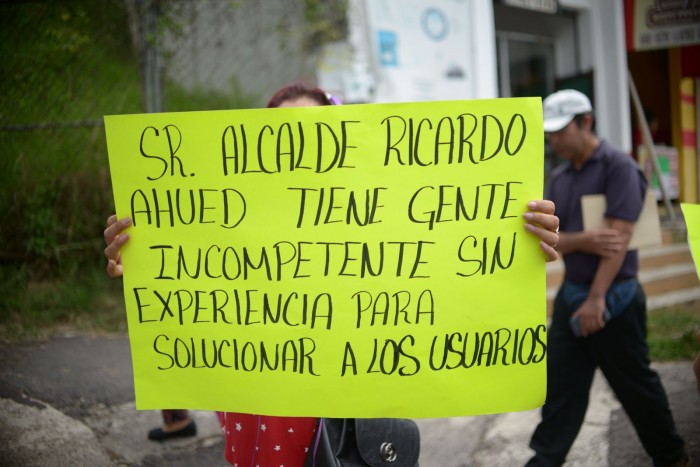 SR. ALCALDE RICARDO
AHUED TIENE GENTE
INCOMPETENTE SIN
EXPERIENCIA PARA
SOLUCIONAR A LOS USUARIOS